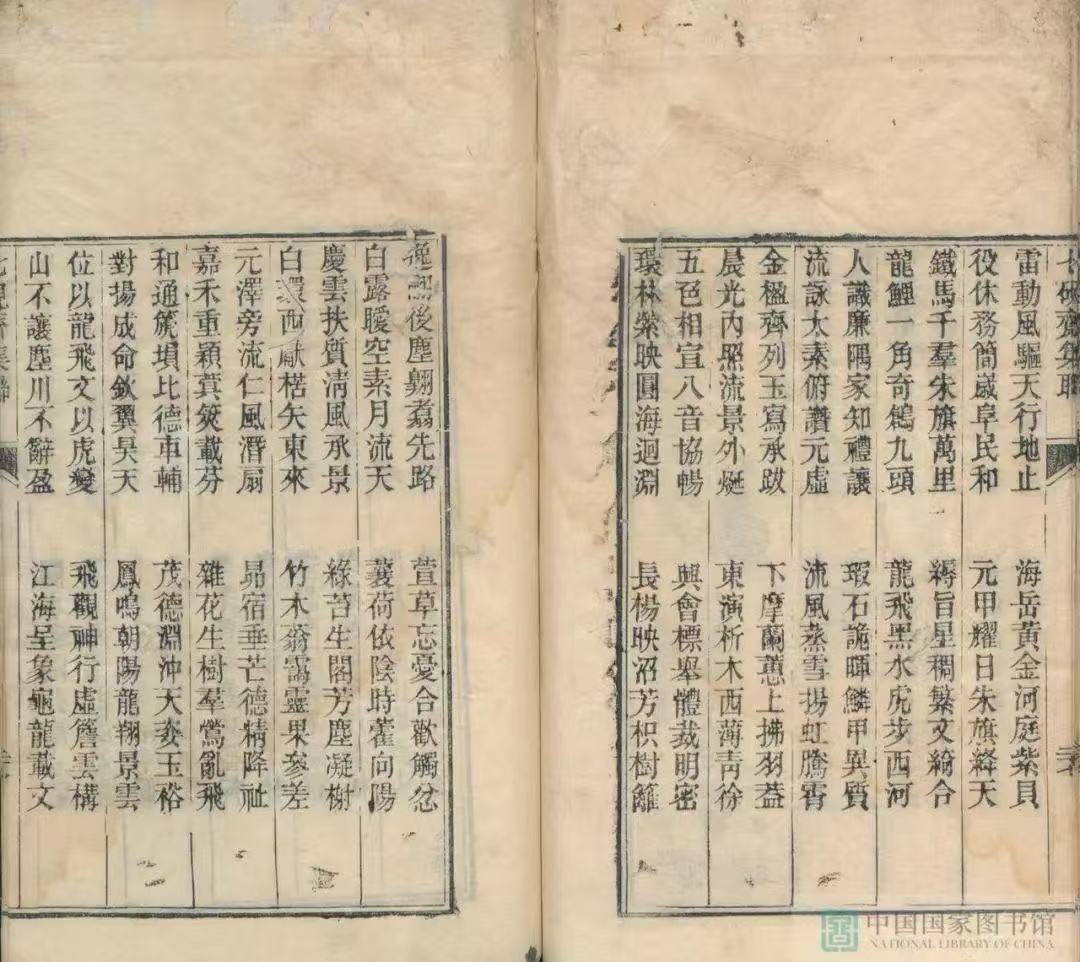 雷動風驅天行地止 海岳黃金河庭紫貝
役休務簡歲阜民和 元甲耀日朱旗絳天
鐵馬千羣朱旗萬里 縟旨星稠繁文綺合
龍鯉一角奇鶬九頭 龍飛黑水虎步西河
人識廉隅家知禮讓 瑕石詭暉鱗甲異質
流詠太素俯讚元虛 流風蒸雪揚虹騰霄
金楹齊列玉寫承跋 下摩蘭蕙上拂羽蓋
晨光內照流景外烻 東演析木西薄青徐
五色相宣八音協暢 興會標舉體裁明密
環林縈映圓海迴淵 長楊映沼芳枳樹籬
逸翮後塵翱翥先路 萱草忘憂合歡觸忿
白露曖空素月流天 蘘荷依陰時藿向陽
慶雲扶質清風承景 綠苔生閣芳塵凝榭
白環西獻楛矢東來 竹木蓊靄靈果參差
元澤旁流仁風潛扇 昴宿垂芒德精降祉
嘉禾重穎蓂莢載芬 雜花生樹羣鶯亂飛
和通篪塤比德車輔 茂德淵沖天姿玉裕
對揚成命欽翼昊天 鳳鳴朝陽龍翔景雲
位以龍飛文以虎變 飛觀神行虛簷雲構
山不讓塵川不辭盈 江海呈象龜龍載文
中国国家图书馆
NATIONAL LIBRARY OF CHINA